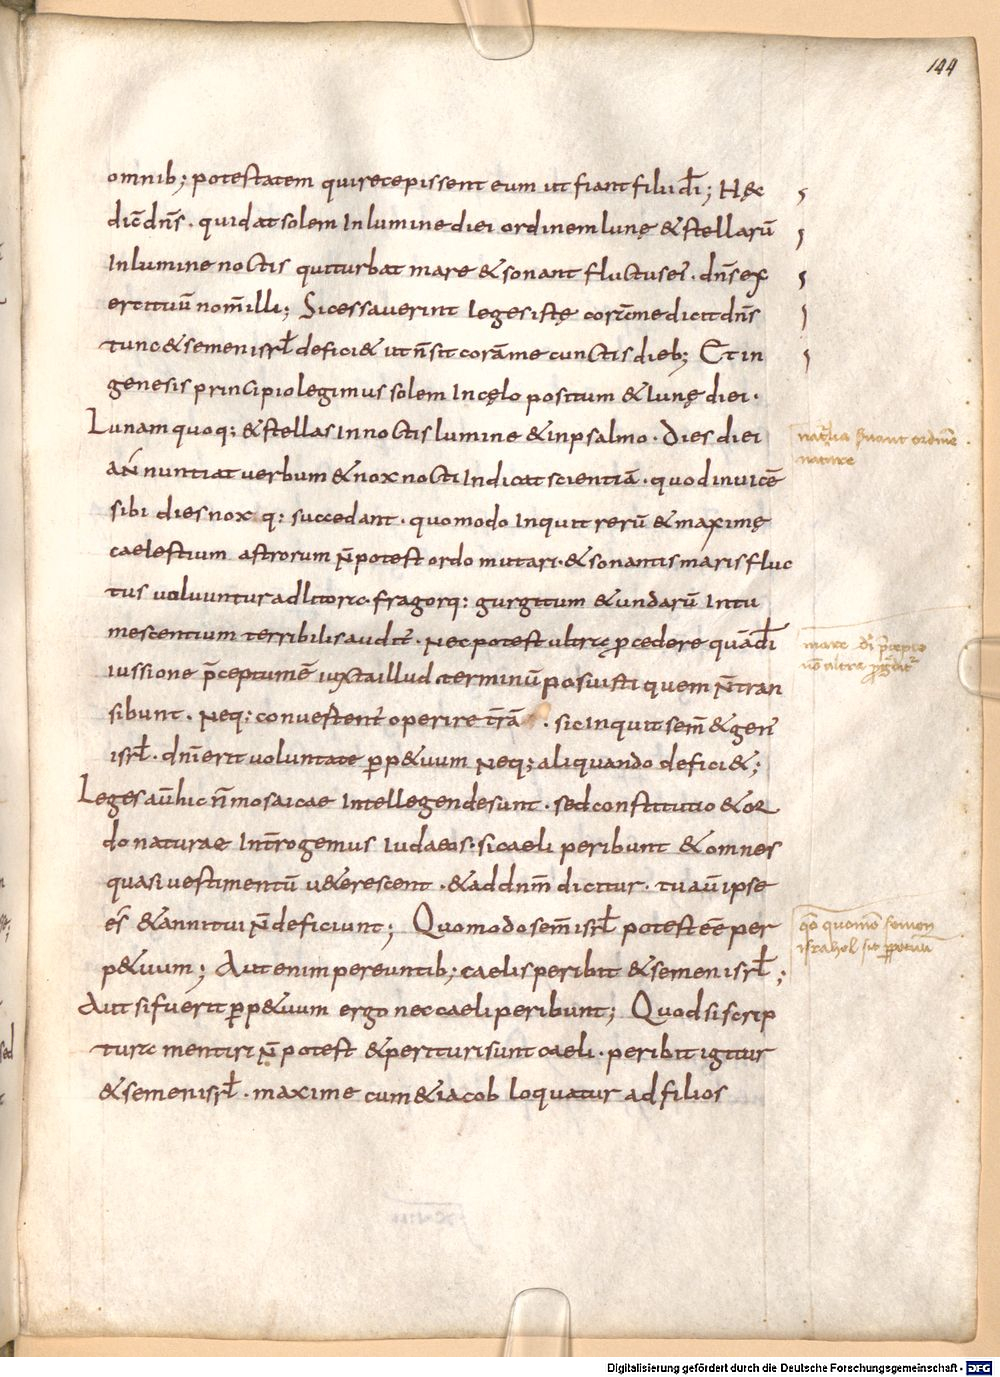 144
omnib; potestatem quirecepissent eum ut fiant filii dī; Hęc
dic̄ dn̄s · qui dat solem In lumine diei ordinem lunę & stellarū
In lumine noctis qui turbat mare & sonant fluctus ei᾽ · dn̄s ex
ercituū nom̄ illi; Si cessaverint leges istę corā me dicit dn̄s
tunc & semen isrł defici& ut n̄ sit corā me cunctis dieb; Et in
genesis principio legimus solem In cęlo positum & lunę diei ·
Lunam quoq; & stellas In noctis lumine & in psalmo · Dies diei
adnuntiat verbum & nox nocti Indicat scientiā · quod invicē
sibi dies nox q: succedant · quomodo Inquit rerū & maximę
caelestium astrorum n̄ potest ordo mutari · & sonantis maris fluc
tus voluuntur ad litora · fragorq: gurgitum & undarū Intu
mescentium terribilis audit᾽ · Nec potest ultra p̱cedere quā dī
iussione p̄ceptum ē iuxta illud terminū posuisti quem n̄ tran
sibunt · Neq: convertent᾽ operire t̄rā · sic Inquit sem̄ & gen᾽
isrł · dn̄i erit voluntate p̱p&uum Neq; aliquando defici&;
Leges aū hic n̄ mosaicae Intellegendę sunt · sed constitutio & or
do naturae Int̄rogemus Iudaeos · si caeli peribunt & omnes
quasi vestimentū v&erescent · & ad dnm̄ dicitur · tu aū ipse
es & anni tui n̄ deficiunt; Quomodo sem̄ isrł potest eē per
p&uum; Aut enim pereuntib; caelis peribit & semen isrł;
Aut si fuerit p̱p&uum ergo nec caeli peribunt; Quod si scrip
tura mentiri n̄ potest & perituri sunt caeli · peribit igitur
& semen isrł · maxime cum & iacob loquatur ad filios
nat᾽alia s̄uant ordinē
nature
mare dī p̄cepto
nō ultra p̱g᾽dit᾽
qō quomō semen
israhel sit p̱petuū
Digitalisierung gefördert durch die Deutsche Forschungsgemeinschaft - DFG